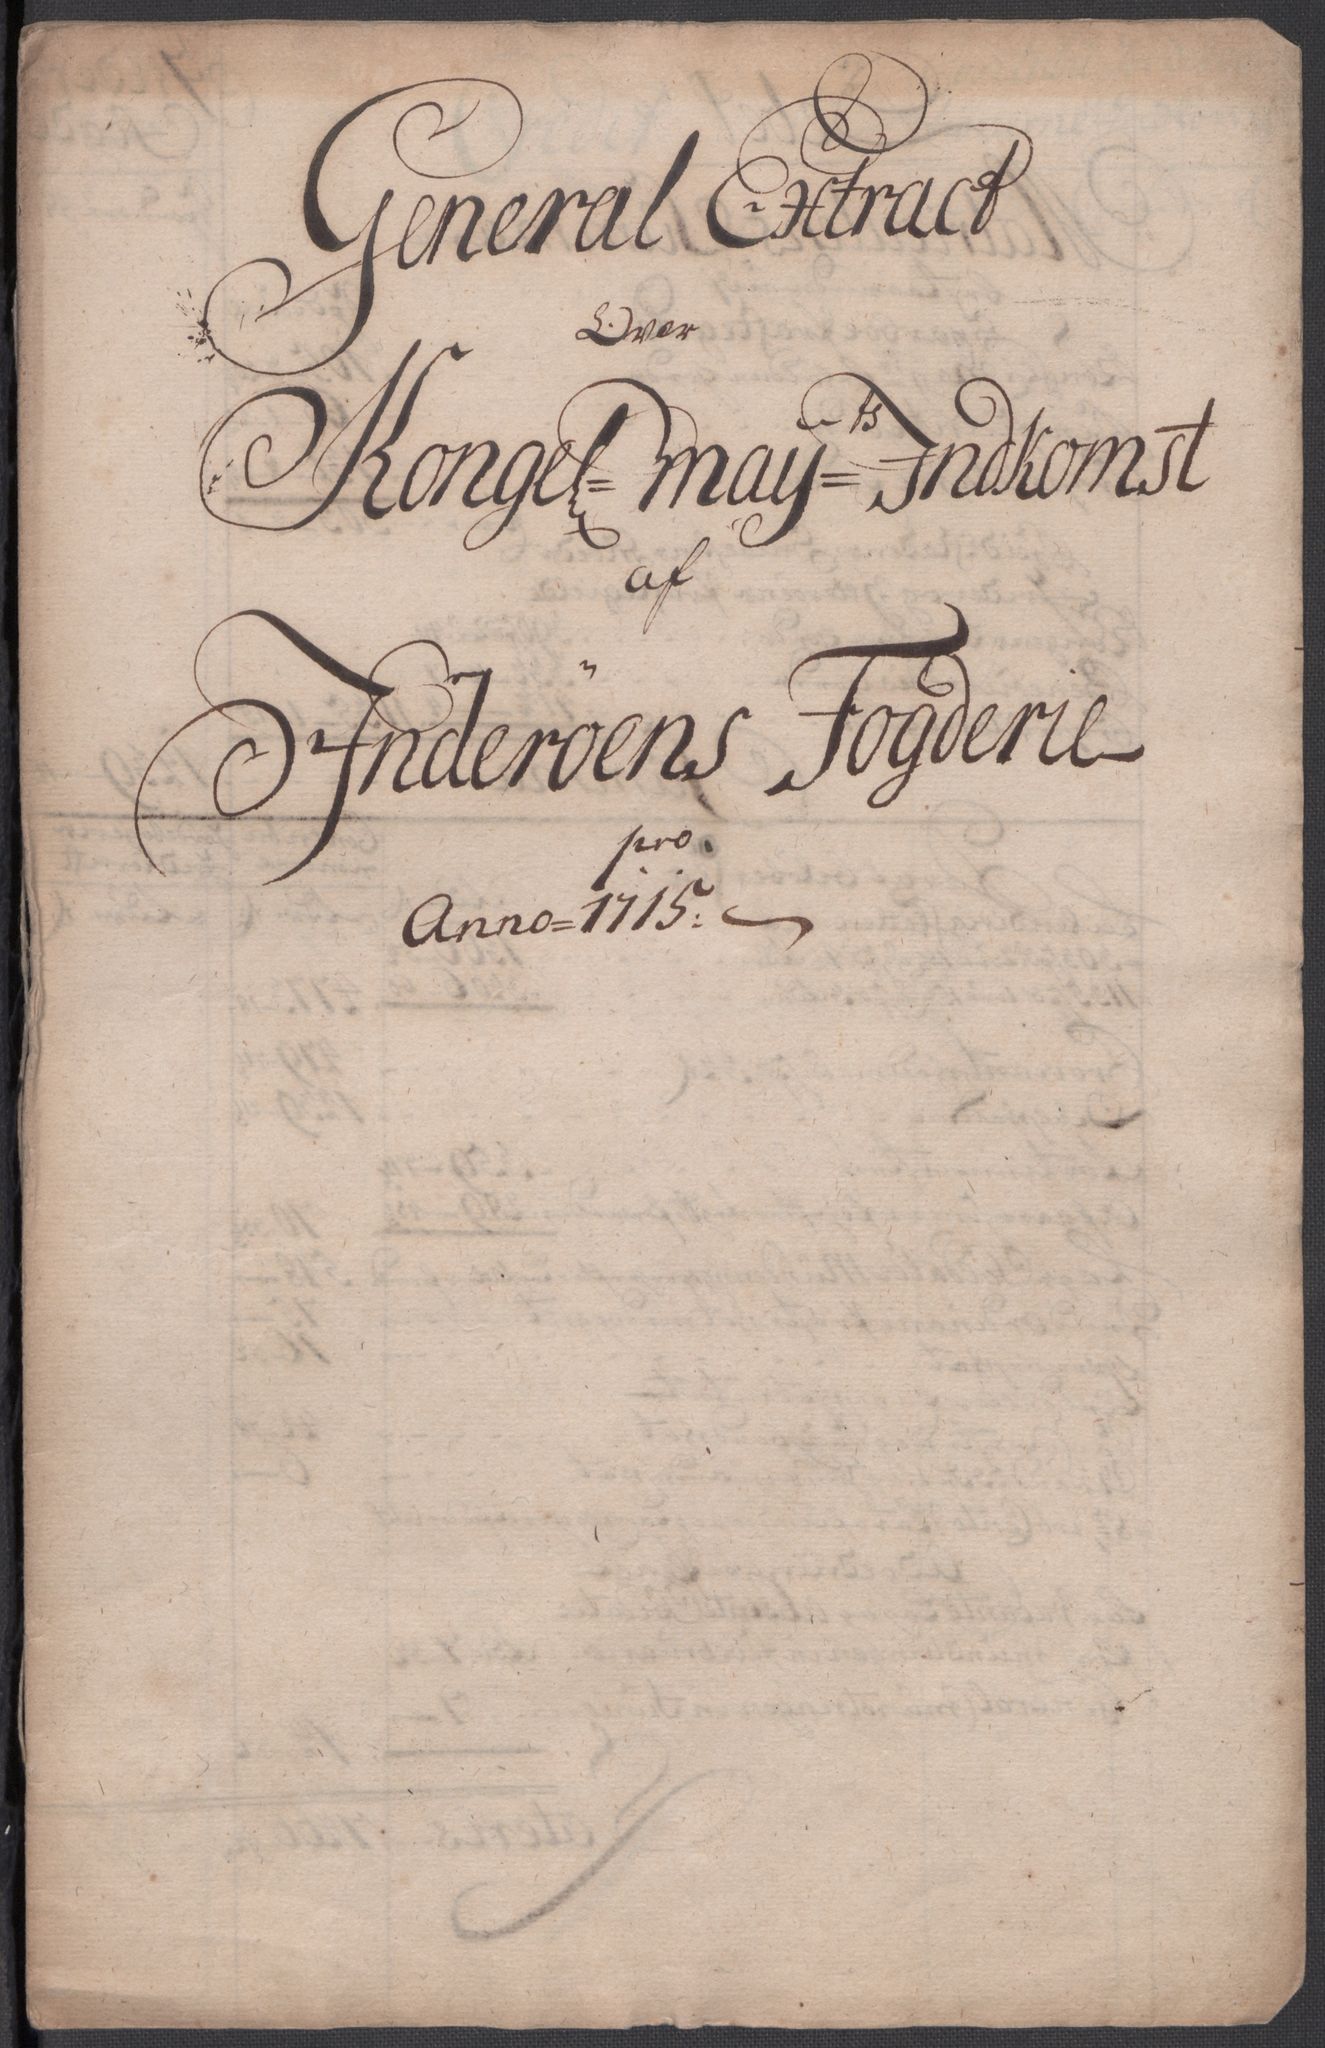 General Extract
Over
Kongel= May=ts Indkomst
af
Inderöens Fogderie
pro
Anno= 1715: